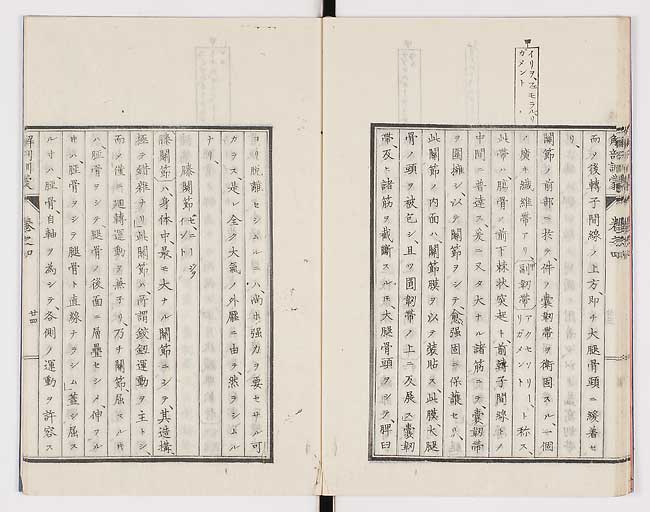 イリヲ、フェモラルリ
ガメント
而ヲ後轉子間線ノ上方即チ大腿骨頭ニ緩着セ
リ、
關節ノ前部ニ於テ、件ノ囊韌帶ヲ衛固スル、一個
ノ廣キ纖維帶アリ「副韌帶」アクセソリー、リガメント
ト称ス、
此帶ハ、膓骨ノ前下棘狀突起ト、前轉子間線トノ
中間ニ普達ス爰ニ又タ大ナル諸筋ニテ囊韌帶
ヲ圍擁シ、以テ關節ヲシテ愈强固ニ保護セリ、
此關節ノ内面ハ、關節膜ヲ以テ装貼ス、此膜大腿
骨ノ頭ヲ被包シ、且ツ固韌帶ノ上ニ及展ス」囊韌
帶、及ト諸筋ヲ截斷スルモ大腿骨頭ヲシテ、髀臼
解剖訓蒙
卷之四
廿三
ヨリ脱離セシムルニハ、尚ホ强力ヲ要セサル可
カラス是レ全ク大氣ノ外壓ニ由テ、然ラシムル
ナリ、
膝關節
膝關節ハ身体中、最モ大ナル關節ニシテ、其造構
極テ錯雜ナリ」此關節ハ、所謂鉸釼運動ヲ主トシ、
而メ僅ニ廻轉運動ヲ兼子リ、乃チ關節、屈スル時
ハ、脛骨ヲシテ腿骨ノ後面ニ層疊セシメ、伸フル
時ハ、脛骨ヲシテ腿骨ト直線ナラシム」蓋シ屈ス
ル寸ハ脛骨、自軸ヲ為シテ、各側ノ運動ヲ許容ス
解剖訓蒙
卷之四
廿四